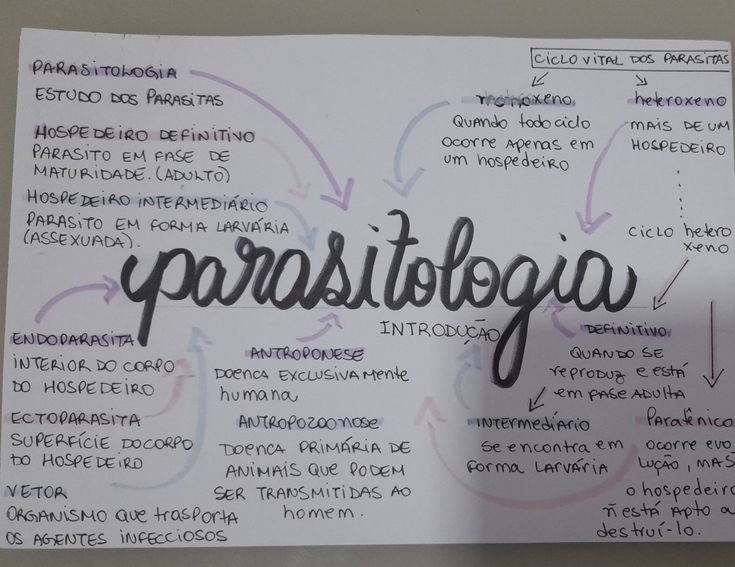 PARASITOLOGIA
ESTUDO DOS PARASITAS
HOSPEDEIRO DEFINITIVO
PARASITO EM FASE DE
MATURIDADE. (ADULTO)
HOSPEDEIRO INTERMEDIÁRIO
PARASITO EM FORMA LARVÁRIA
(ASSEXUADA).
CICLO VITAL DOS PARASITAS
monoxeno
QUANDO todo ciclo
ocorre APENAS EM
um hospedeiro
heteroxeno
MAIS DE UM
HOSPEDEIRO
CICLO hetero
xeno
parasitologia
INTRODUÇÃO
ENDOPARASITA
INTERIOR DO CORPO
DO HOSPEDEIRO
ECTOPARASITA
SUPERFÍCIE DO CORPO
DO HOSPEDEIRO
VETOR
ORGANISMO que trasporta
OS AGENTES INFECCIOSOS
ANTROPONESE
DOENCA EXCLUSIVAMENTE
humana
ANTROPOZOONOSE
DOENCA PRIMÁRIA DE
ANIMAIS QUE PODEM
SER TRANSMITIDAS AO
homem.
DEFINITIVO
QUANDO SE
reproduz e está
em FASE ADULTA
INTERMEDIÁRIO
SE ENCONTRA EM
forma LARVÁRIA
Paratênico
ocorre evo
LUÇÃO, MAS
o hospedeiro
ñ está Apto a
destruí-lo.